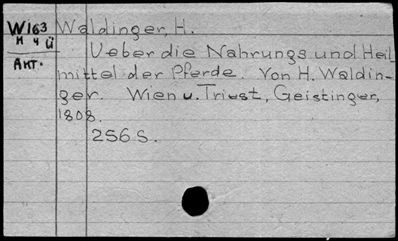 W163 Waldinger, H.
H 4 Ü
Ueber die Nahrungs und Heil
AKT. mittel der Pferde. Von H. Waldin-
ger. Wien u. Triest, Geistinger,
1808.
256 S.